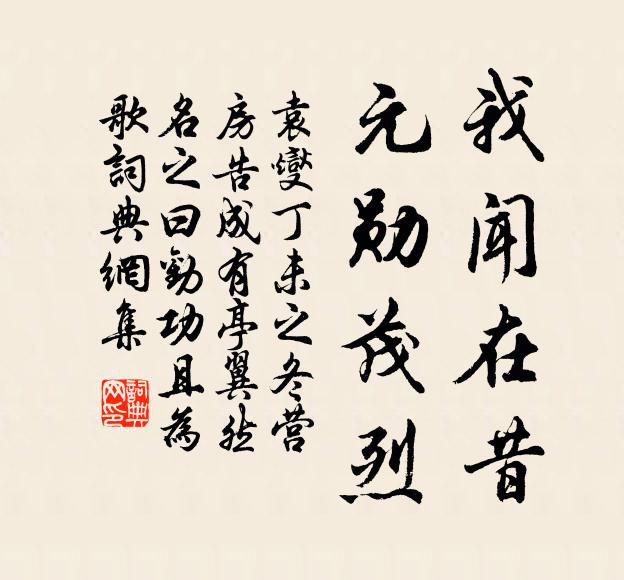 我闻在昔
元勋茂烈
袁燮丁未之冬营
房告成有亭翼然
名之曰劝功且為
歌詞典網集
詞典網印